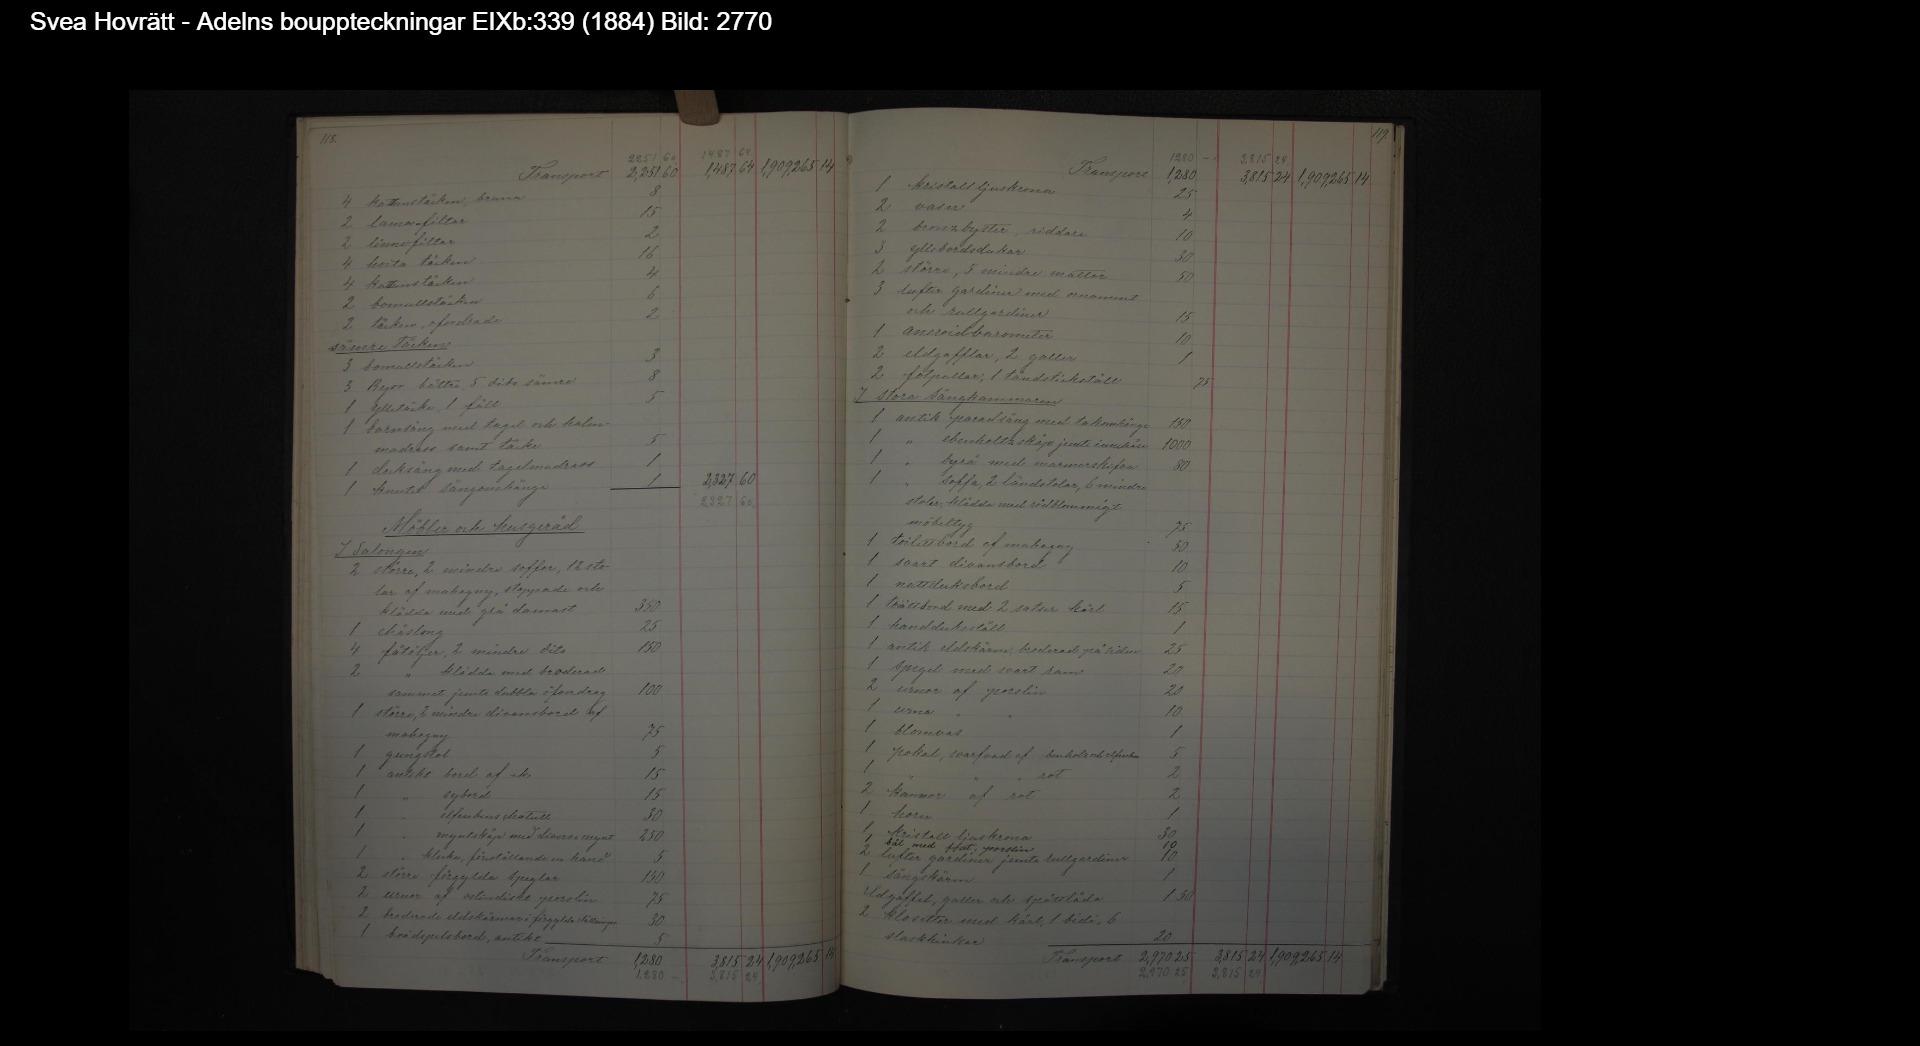 Svea Hovrätt - Adelns bouppteckningar EIXb:339 (1884) Bild: 2770
118.
2251 60 1487 64
Transport 2,251 60 1,487 64 1,909,265 14
4 kattunstäcken, bruna 8
2 lama-filtar 15
2 linnefiltar 2
4 hvita täcken 16
4 kattunstäcken 4
2 bomullstäcken 6
2 täcken, ofodrade 2
sämre täcken
3 bomullstäcken 3
3 Ryor bättre, 5 dito sämre 8
1 ylletäcke, 1 fäll 5
1 barnsäng med tagel och halm-
madrass samt täcke 5
1 med tagelmadrass 1
1 knutet sängomhänge 1 2,327 60
2327 60
Möbler och husgeråd
I Salongen
2 större, 2 mindre soffor, 12 sto-
lar af mahogny, stoppade och
klädda med grå damast 350
1 chäslong 25
4 fåtöljer, 2 mindre dito 150
2 " klädda med broderad
sammet jemte dubbla öfverdrag 100
1 större, 2 mindre divansbord af
mahogny 75
1 gungstol 5
1 antikt bord af ek 15
1 " sybord 15
1 " elfenbensschatull 30
1 " myntskåp med diverse mynt 250
1 " klocka, föreställande en hand 5
2 större förgylda speglar 150
2 urnor af ostindiskt porslin 75
2 broderade eldskärmar i förgylda ställningar 30
1 brädspelsbord, antikt 5
Transport 1,280 3,815 24 1,909,265 14
1.280 - 3,815 24
119
1280 - 3,815 24
Transport 1,280 3,815 24 1,909,265 14
1 kristall ljuskrona 25
2 vaser 4
2 bronzbyster, riddare 10
3 yllebordsdukar 30
2 större, 5 mindre mattor 50
3 lufter gardiner med ornament
och rullgardiner 15
1 aneroidbarometer 10
2 eldgafflar, 2 galler 1
2 fotpallar, 1 tändsticksställ 75
I stora Sängkammaren
1 antik paradsäng med takomhänge 150
1 " ebenholtzskåp jemte innehåll 1000
1 " byrå med marmorskifva 80
1 " soffa, 2 länstolar, 6 mindre
stolar, klädda med rödblommigt
möbeltyg 75
1 toilettbord af mahogny 30
1 svart divansbord 10
1 nattduksbord 5
1 tvättbord med 2 satser kärl 15
1 handduksställ 1
1 antik eldskärm, broderad på siden 25
1 spegel med svart ram 20
2 urnor af porslin 20
1 urna " " 10
1 blomvas 1
1 pokal, svarfvad af ebenholz och elfenben 5
1 " " " rot 2
2 kannor af rot 2
1 horn 1
1 kristall ljuskrona 30
1 bål med fat, porslin 10
2 lufter gardiner jemte rullgardiner 10
1 sängskärm 1
Eldgaffel, galler och spottlåda 1 50
2 klosetter med kärl, 1 bidé, 6
slaskhinkar 20
Transport 2,970 25 3,815 24 1,909,265 14
2,970 25 3,815 24